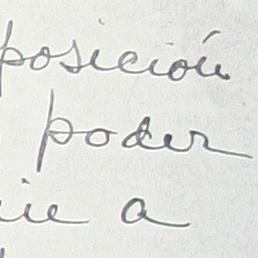 posición
poder
a